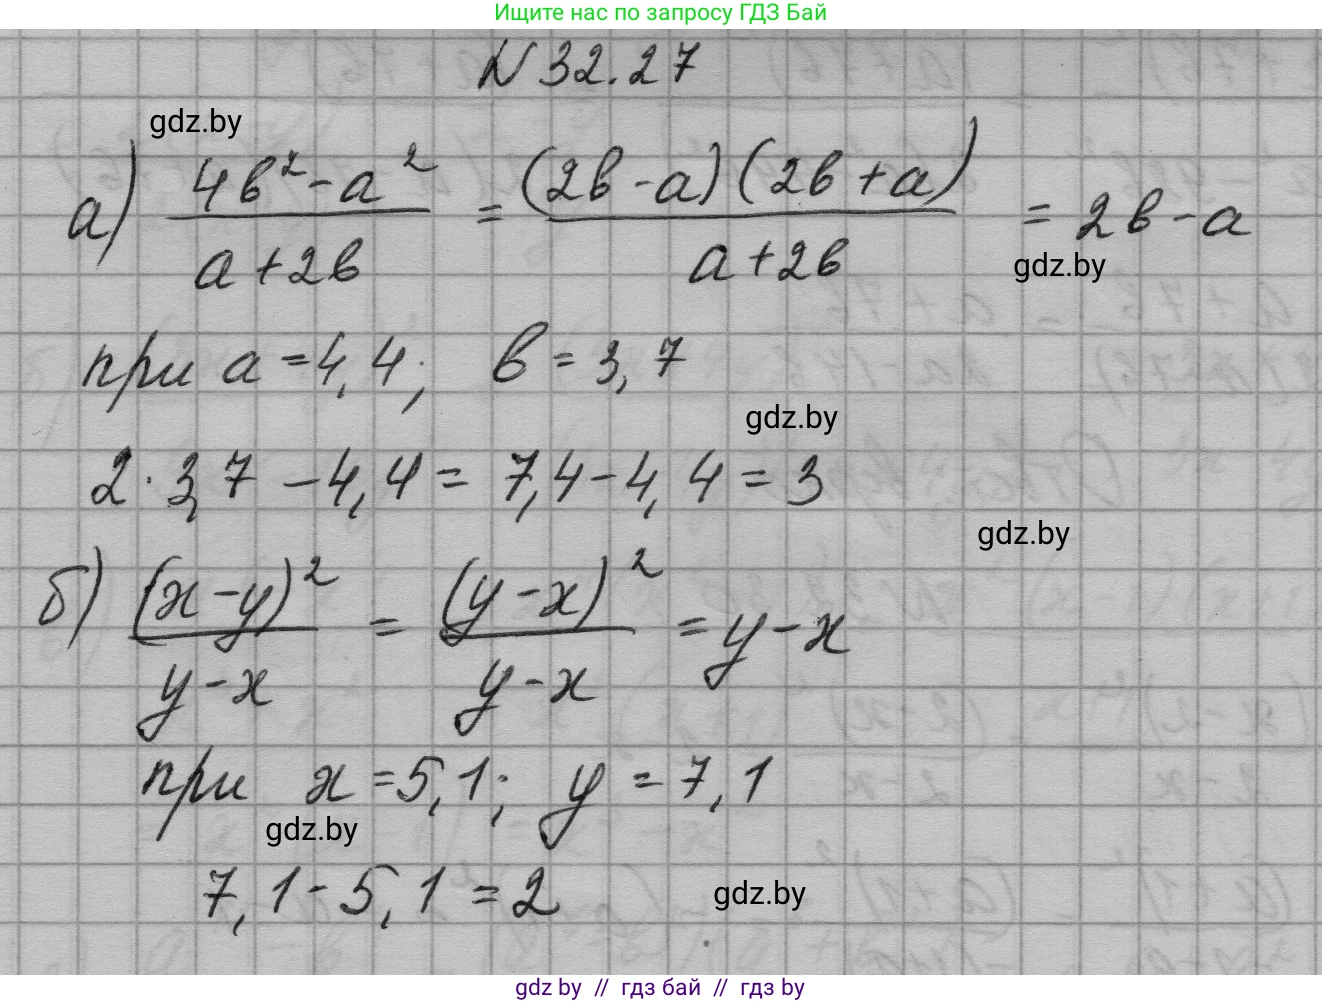 Ищите нас по запросу ГДЗ Бай
N 32.27
gdz.by
а) (4в² - а²)/(а + 2в) = ((2в - а)(2в + а))/(а + 2в) = 2в - а
gdz.by
при а = 4,4; в = 3,7
gdz.by
2 · 3,7 - 4,4 = 7,4 - 4,4 = 3
gdz.by
б) (x - y)²/(y - x) = (y - x)²/(y - x) = y - x
при x = 5,1; y = 7,1
gdz.by
7,1 - 5,1 = 2
gdz.by
gdz by // гдз бай // гдз by